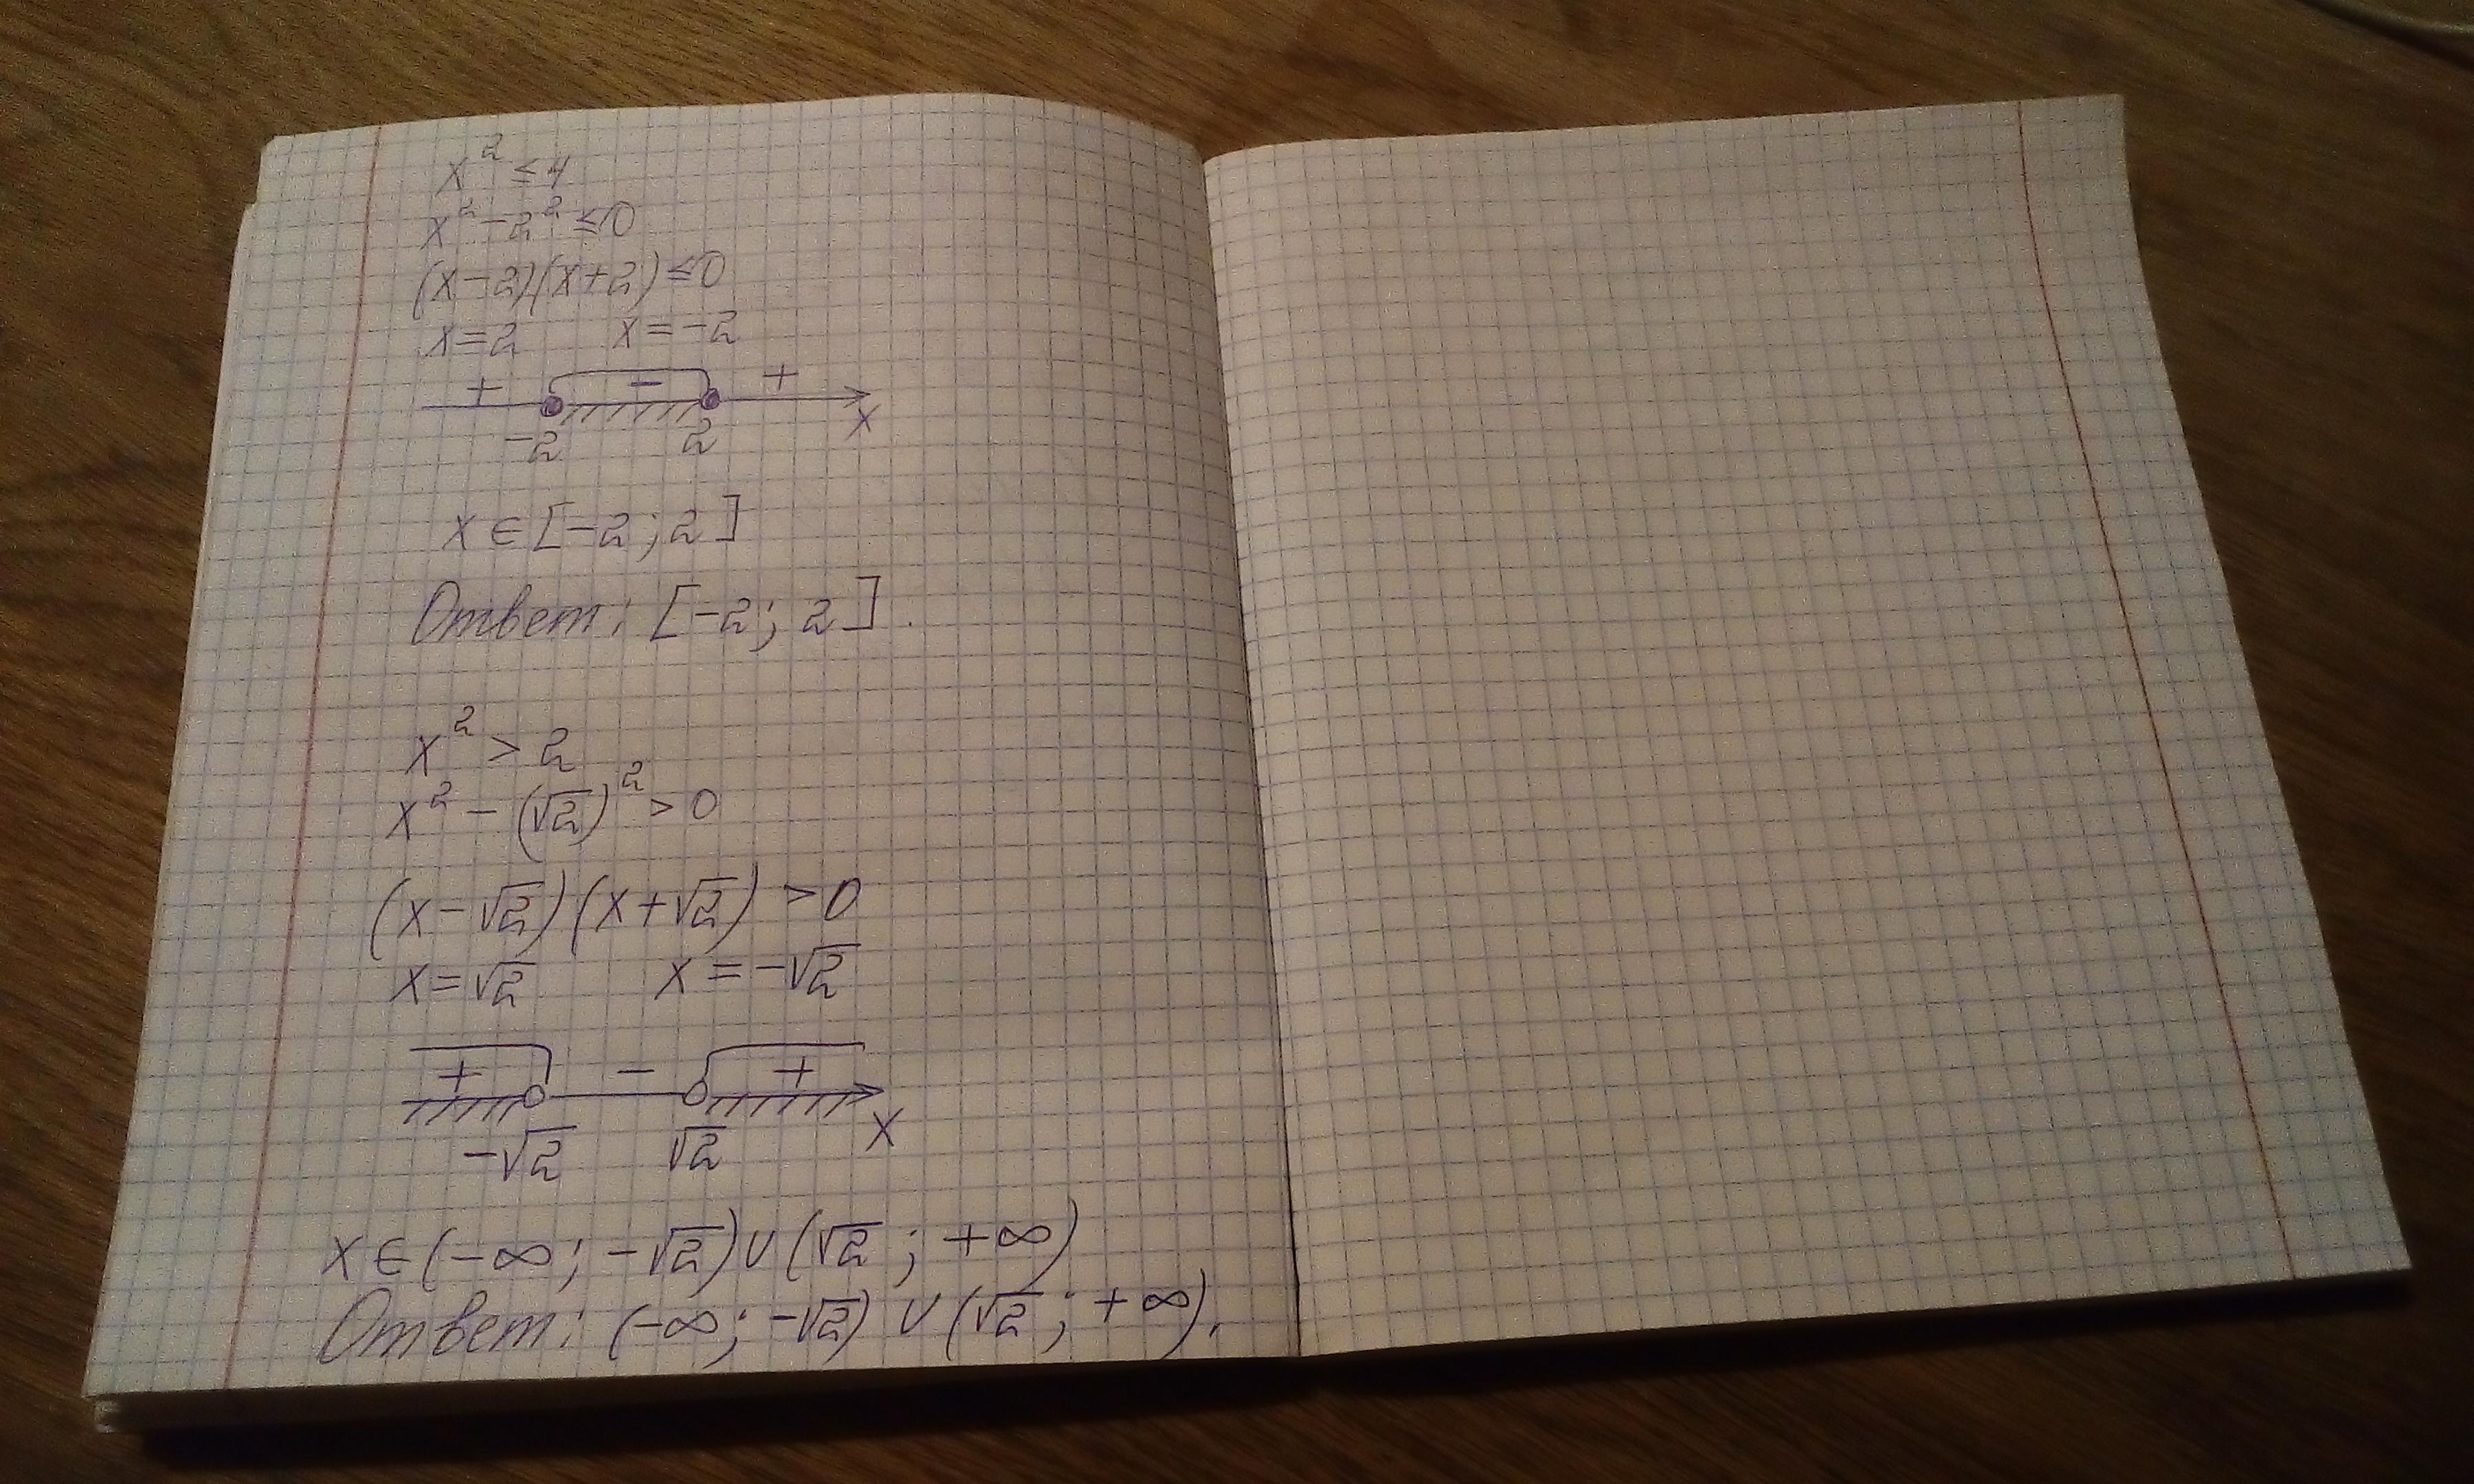 x² ≤ 4
x² - 2² ≤ 0
(x-2)(x+2) ≤ 0
x=2 x=-2
+ - +
-2 2 x
x ∈ [-2; 2]
Ответ: [-2; 2].
x² > 2
x² - (√2)² > 0
(x-√2)(x+√2) > 0
x=√2 x=-√2
+ - +
-√2 √2 x
x ∈ (-∞; -√2) ∪ (√2; +∞)
Ответ: (-∞; -√2) ∪ (√2; +∞).